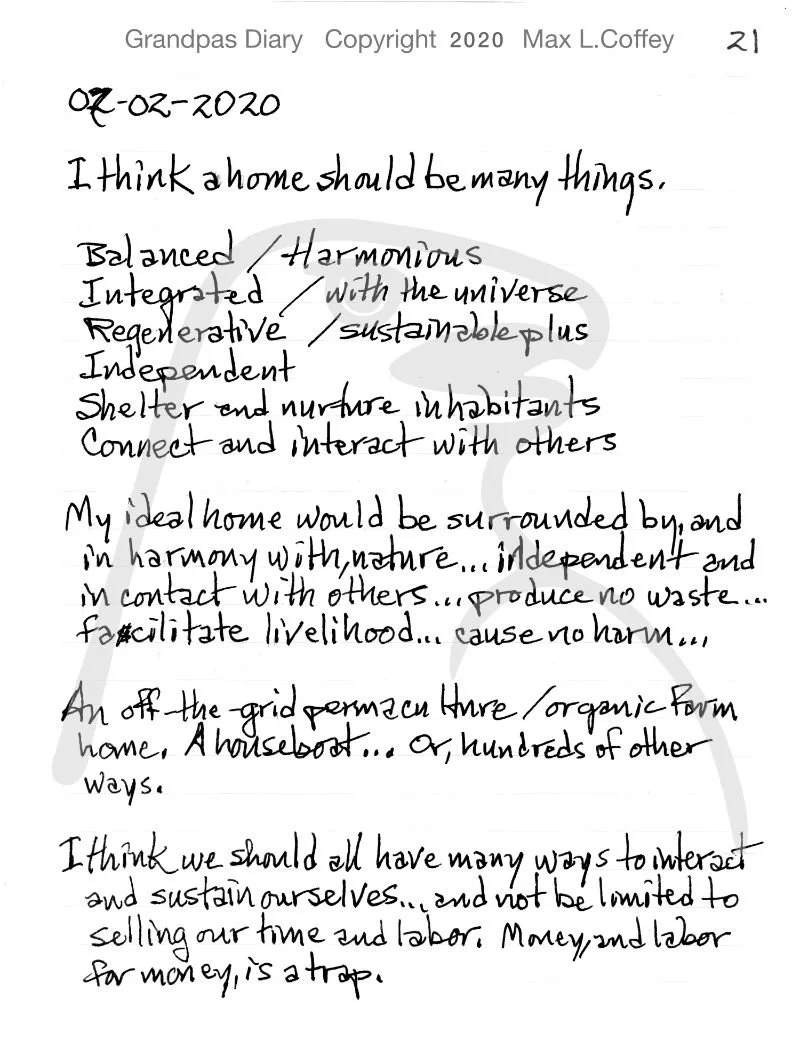 Grandpas Diary Copyright 2020 Max L.Coffey 21
02-02-2020
I think a home should be many things.
Balanced / Harmonious
Integrated / with the universe
Regenerative / sustainable plus
Independent
Shelter and nurture inhabitants
Connect and interact with others
My ideal home would be surrounded by, and
in harmony with, nature... independent and
in contact with others... produce no waste...
facilitate livelihood... cause no harm...
An off-the-grid permaculture / organic farm
home. A houseboat... Or, hundreds of other
ways.
I think we should all have many ways to interact
and sustain ourselves... and not be limited to
selling our time and labor. Money, and labor
for money, is a trap.